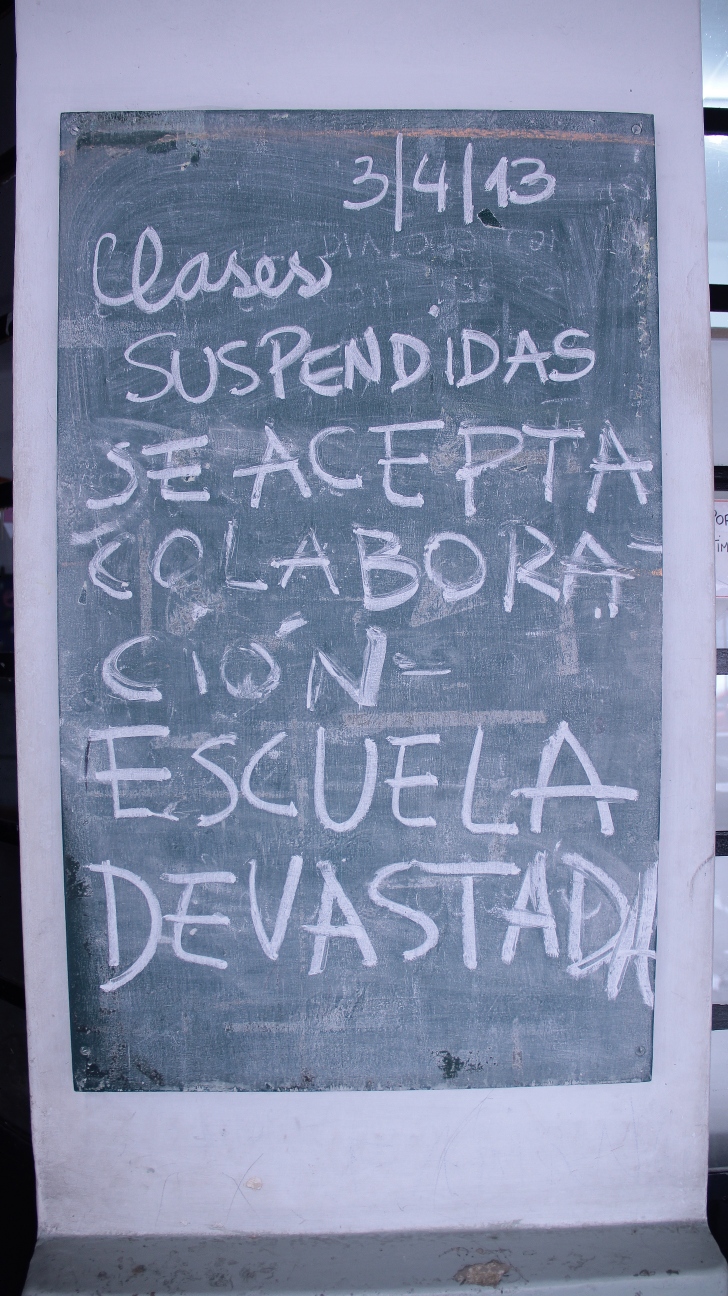 3/4/13
Clases
SUSPENDIDAS
SE ACEPTA
COLABORA-
CIÓN-
ESCUELA
DEVASTADA